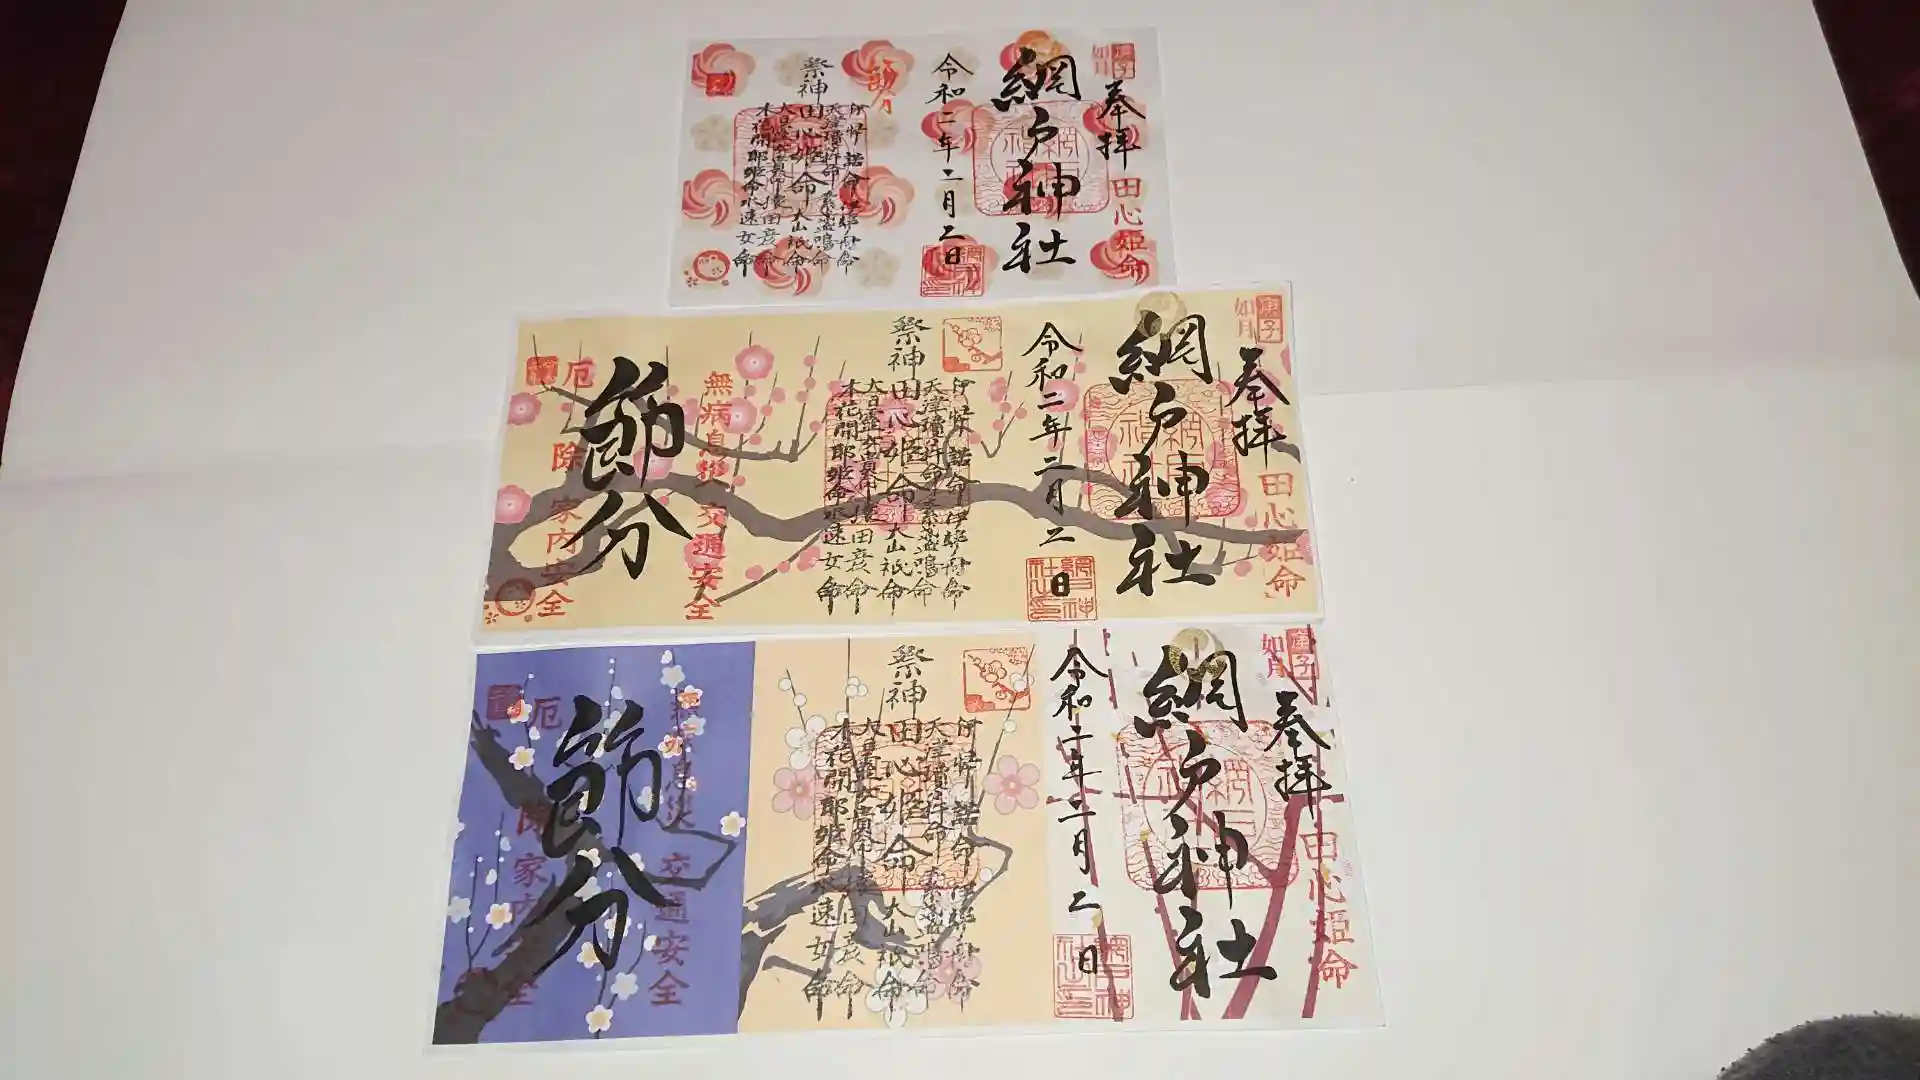 庚子
如月
奉拝
田心姫命
網戸神社
令和二年二月二日
節分
祭神
伊弉諾命 伊弉冉命
天津瓊々杵命 素盞嗚命
田心姫命 大山祇命
大日孁女貴命 猿田彦命
木花開耶姫命 水速女命
庚子
如月
奉拝
田心姫命
網戸神社
令和二年二月二日
祭神
伊弉諾命 伊弉冉命
天津瓊々杵命 素盞嗚命
田心姫命 大山祇命
大日孁女貴命 猿田彦命
木花開耶姫命 水速女命
無病息災 交通安全
節分
厄除 家内安全
庚子
如月
奉拝
田心姫命
網戸神社
令和二年二月二日
祭神
伊弉諾命 伊弉冉命
天津瓊々杵命 素盞嗚命
田心姫命 大山祇命
大日孁女貴命 猿田彦命
木花開耶姫命 水速女命
無病息災 交通安全
節分
厄除 家内安全